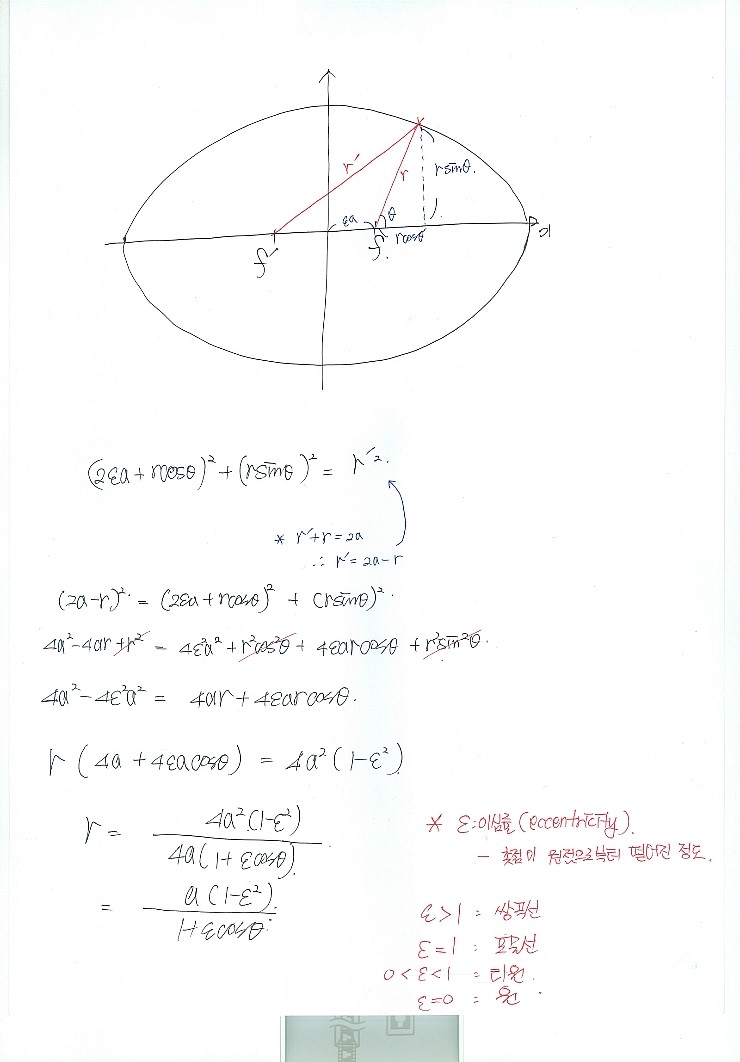 r'
r
r sinθ.
εa
θ
x
f'
f.
r cosθ
(2εa + r cosθ)² + (r sinθ)² = r'².
* r' + r = 2a
∴ r' = 2a - r
(2a - r)² = (2εa + r cosθ)² + (r sinθ)².
4a² - 4ar + r² = 4ε²a² + r²cos²θ + 4εar cosθ + r²sin²θ.
4a² - 4ε²a² = 4ar + 4εar cosθ.
r (4a + 4εa cosθ) = 4a² (1 - ε²)
r = 4a² (1 - ε²) / 4a (1 + ε cosθ).
= a (1 - ε²) / 1 + ε cosθ.
* ε : 이심률 (eccentricity).
- 촛점이 원점으로부터 떨어진 정도.
ε > 1 : 쌍곡선
ε = 1 : 포물선
0 < ε < 1 : 타원.
ε = 0 : 원.